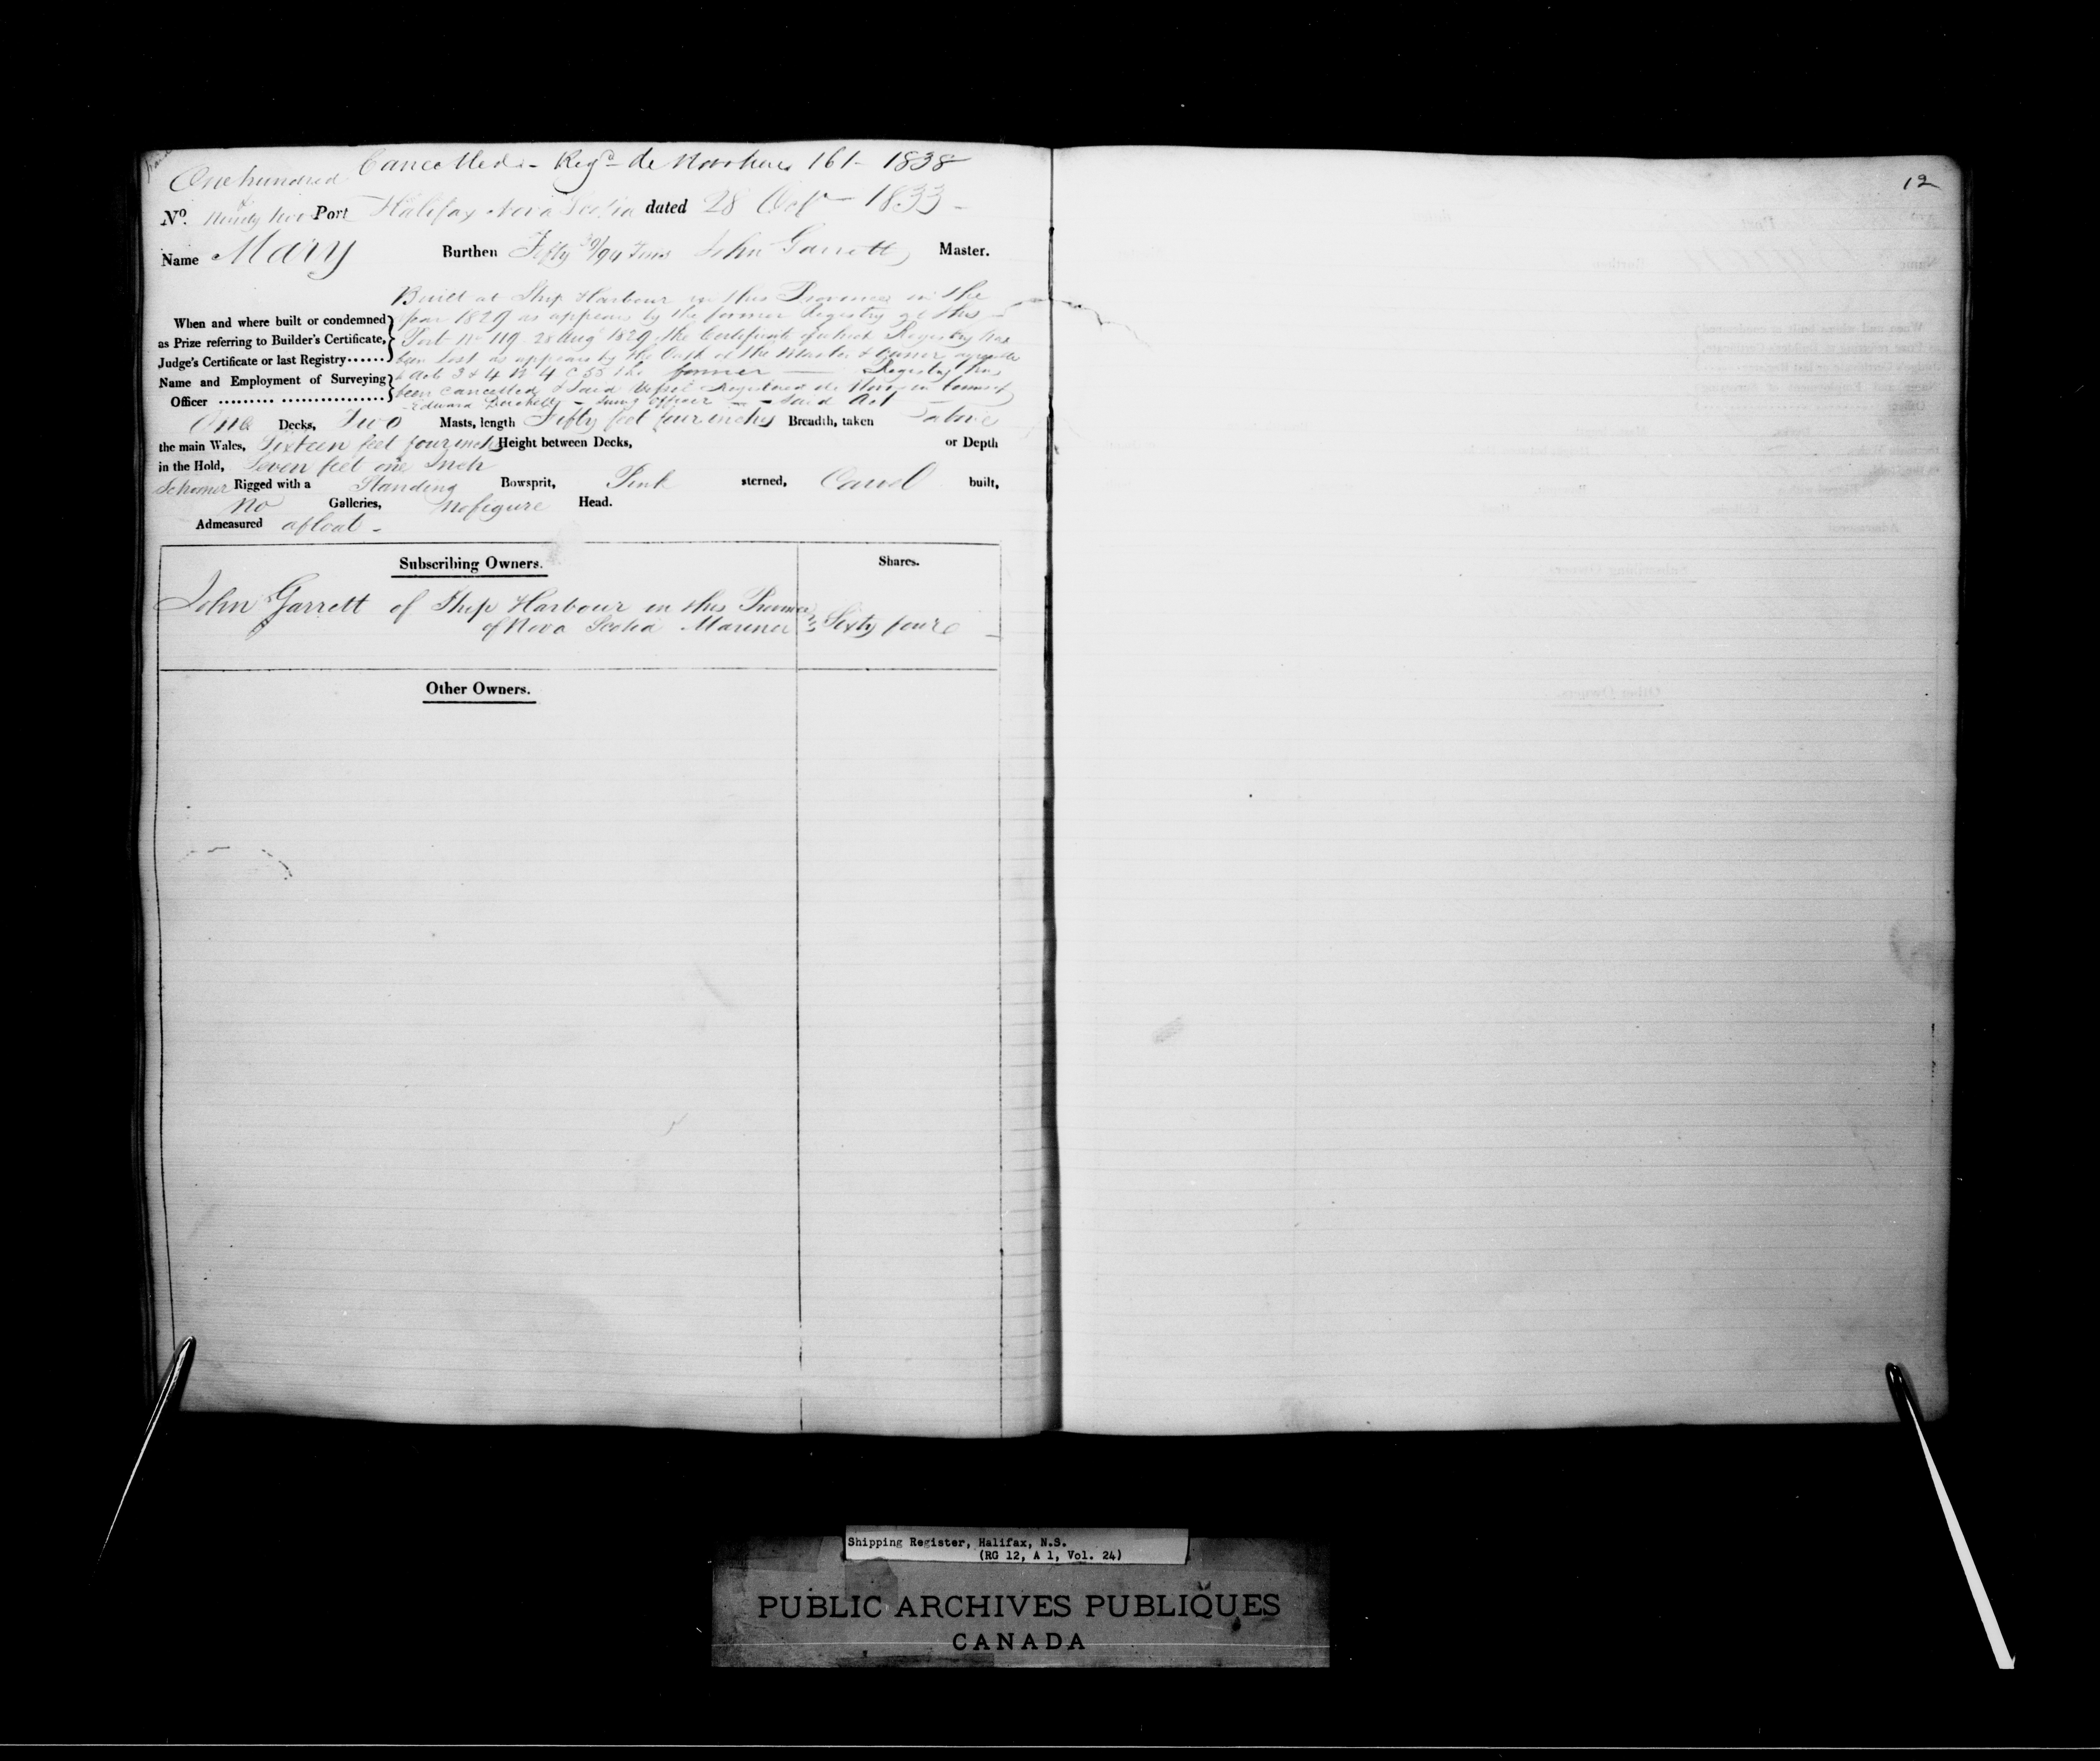 Cancelled - Regd de Novo here 161 - 1838
One hundred
No. & Ninety two Port Halifax Nova Scotia dated 28 1833 -
Name Mary Burthen Fifty 30/94 Tons John Garrett Master.
Built at Ship Harbour in this Province in the
year 1829 as appears by the former Registry at this
Port No 119 28 Aug 1829 the Certificate of which Registry has
been lost as appears by the Oath of the Master & Owner agreeable
to Act 3 & 4 W 4 C 55 the former — Registry has
been Cancelled & Said Vessel Registered de Novo in
Edward - Survg Officer - - Said Act -
When and where built or condemned
as Prize referring to Builder's Certificate,
Judge's Certificate or last Registry......
Name and Employment of Surveying
Officer ......... .................
One Decks, Two Masts, length Fifty feet four inches Breadth, taken above
the main Wales, Sixteen feet four inches Height between Decks, or Depth
in the Hold, Seven feet one Inch
Schooner Rigged with a Standing Bowsprit, Pink sterned, Carvel built,
No Galleries, No figure Head.
Admeasured afloat -
Subscribing Owners. Shares.
John Garrett of Ship Harbour in this Province
of Nova Scotia Mariner Sixty four
Other Owners.
12
Shipping Register, Halifax, N.S.
(RG 12, A 1, Vol. 24)
PUBLIC ARCHIVES PUBLIQUES
CANADA